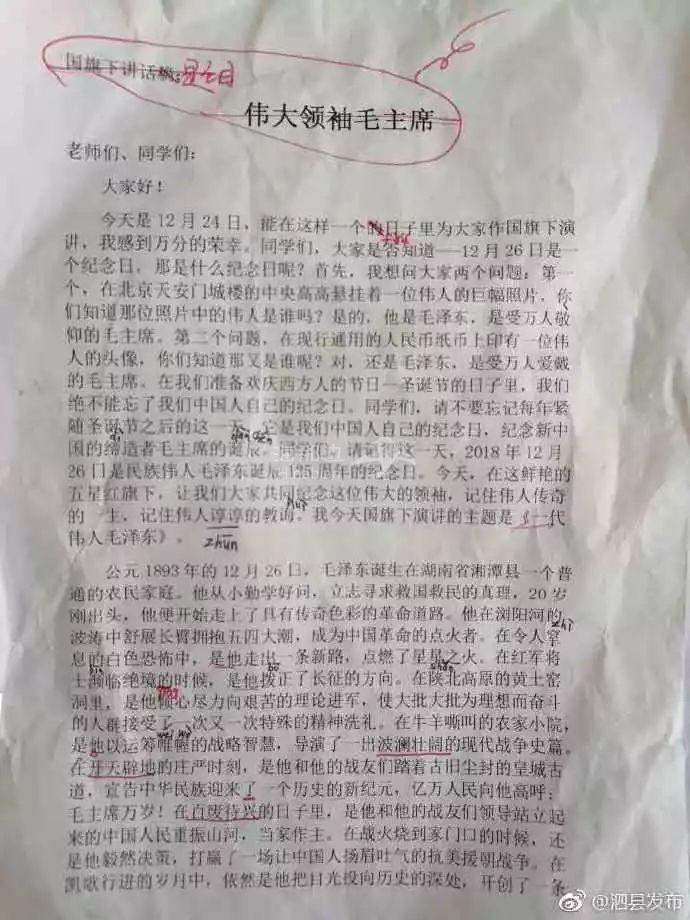 国旗下讲话稿:
伟大领袖毛主席
老师们、同学们:
大家好！
今天是12月24日，能在这样一个的日子里为大家作国旗下演
讲，我感到万分的荣幸。同学们，大家是否知道──12月26日是一
个纪念日。那是什么纪念日呢？首先，我想问大家两个问题：第一
个，在北京天安门城楼的中央高高悬挂着一位伟人的巨幅照片，你
们知道那位照片中的伟人是谁吗？是的，他是毛泽东，是受万人敬
仰的毛主席。第二个问题，在现行通用的人民币纸币上印有一位伟
人的头像，你们知道那又是谁呢？对，还是毛泽东，是受万人爱戴
的毛主席。在我们准备欢庆西方人的节日─圣诞节的日子里，我们
绝不能忘了我们中国人自己的纪念日。同学们，请不要忘记每年紧
随圣诞节之后的这一天，它是我们中国人自己的纪念日，纪念新中
国的缔造者毛主席的诞辰。同学们，请记得这一天，2018年12月
26日是民族伟人毛泽东诞辰125周年的纪念日。今天，在这鲜艳的
五星红旗下，让我们大家共同纪念这位伟大的领袖，记住伟人传奇
的一生，记住伟人谆谆的教诲。我今天国旗下演讲的主题是《一代
伟人毛泽东》。
zhūn
公元1893年的12月26日，毛泽东诞生在湖南省湘潭县一个普
通的农民家庭。他从小勤学好问，立志寻求救国救民的真理，20岁
刚出头，他便开始走上了具有传奇色彩的革命道路。他在浏阳河的
波涛中舒展长臂拥抱五四大潮，成为中国革命的点火者。在令人窒
息的白色恐怖中，是他走出一条新路，点燃了星星之火。在红军将
士濒临绝境的时候，是他拨正了长征的方向。在陕北高原的黄土窑
洞里，是他倾心尽力向艰苦的理论进军，使大批大批为理想而奋斗
的人群接受了一次又一次特殊的精神洗礼。在牛羊嘶叫的农家小院，
是他以运筹帷幄的战略智慧，导演了一出波澜壮阔的现代战争史篇。
在开天辟地的庄严时刻，是他和他的战友们踏着古旧尘封的皇城古
道，宣告中华民族迎来了一个历史的新纪元，亿万人民向他高呼：
毛主席万岁！在百废待兴的日子里，是他和他的战友们领导站立起
来的中国人民重振山河，当家作主。在战火烧到家门口的时候，还
是他毅然决策，打赢了一场让中国人扬眉吐气的抗美援朝战争。在
凯歌行进的岁月中，依然是他把目光投向历史的深处，开创了一条
@泗县发布